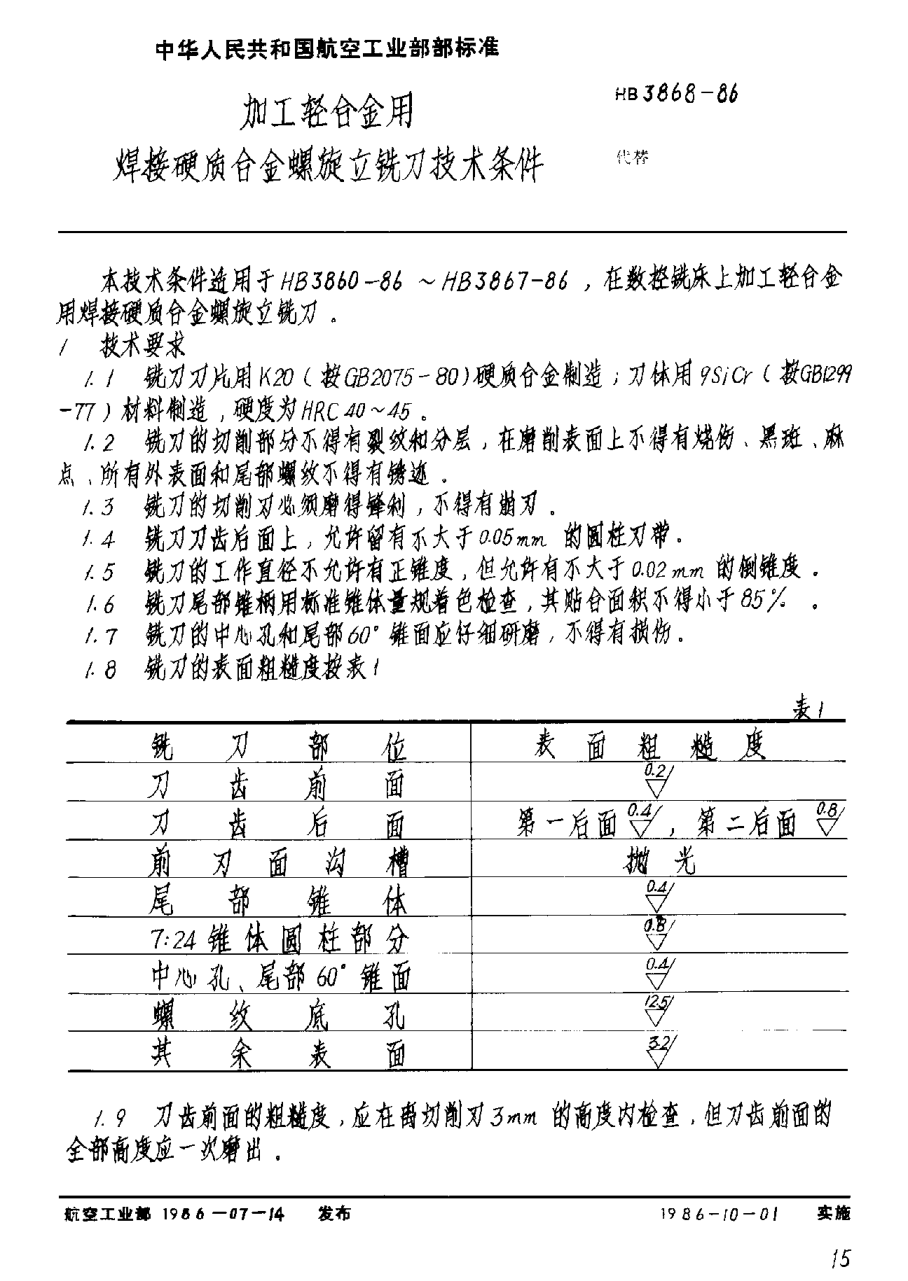 中华人民共和国航空工业部部标准
HB 3868-86
加工轻合金用
焊接硬质合金螺旋立铣刀技术条件
代替
本技术条件适用于HB3860-86 ~HB3867-86 ，在数控铣床上加工轻合金
用焊接硬质合金螺旋立铣刀 。
1 技术要求
1.1 铣刀刀片用K20（按GB2075-80)硬质合金制造；刀体用9SiCr（按GB1299
-77）材料制造，硬度为HRC40~45。
1.2 铣刀的切削部分不得有裂纹和分层，在磨削表面上不得有烧伤、黑斑、麻
点、所有外表面和尾部螺纹不得有锈迹 。
1.3 铣刀的切削刃必须磨得锋利，不得有崩刃 。
1.4 铣刀刀齿后面上，允许留有不大于0.05mm 的圆柱刃带。
1.5 铣刀的工作直径不允许有正锥度，但允许有不大于0.02mm 的倒锥度 。
1.6 铣刀尾部锥柄用标准锥体量规着色检查，其贴合面积不得小于85% 。
1.7 铣刀的中心孔和尾部60°锥面应仔细研磨，不得有损伤。
1.8 铣刀的表面粗糙度按表1
表1
铣刀部位 表面粗糙度
刀齿前面 0.2
刀齿后面 第一后面 0.4，第二后面 0.8
前刃面沟槽 抛光
尾部锥体 0.4
7:24锥体圆柱部分 0.8
中心孔、尾部60°锥面 0.4
螺纹底孔 12.5
其余表面 3.2
1.9 刀齿前面的粗糙度，应在离切削刃3mm 的高度内检查，但刀齿前面的
全部高度应一次磨出 。
航空工业部 1986-07-14 发布 1986-10-01 实施
15